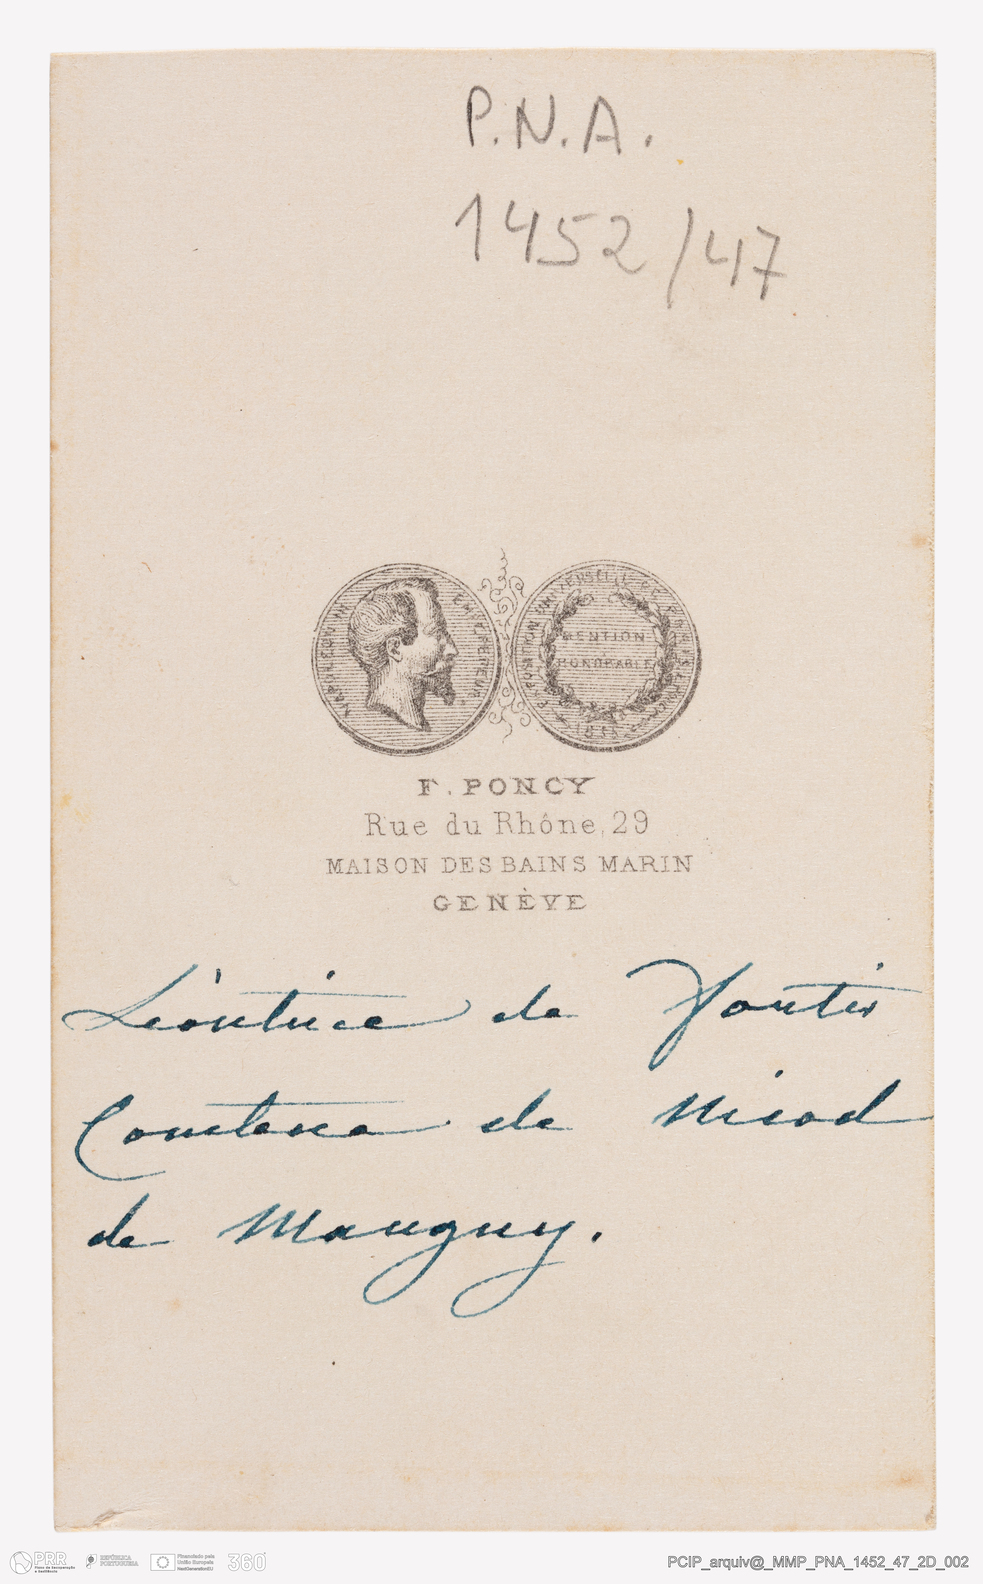 P.N.A.
1452/47
NAPOLEON III EMPEREUR
EXPOSITION UNIVERSELLE DE
MENTION
HONORABLE
F. PONCY
Rue du Rhône, 29
MAISON DES BAINS MARIN
GENÈVE
Léontine de
Comtesse de Nicod
de Maugny.
PRR
Plano de Recuperação
e Resiliência
REPÚBLICA
PORTUGUESA
Financiado pela
União Europeia
NextGenerationEU
360°
PCIP_arquiv@_MMP_PNA_1452_47_2D_002